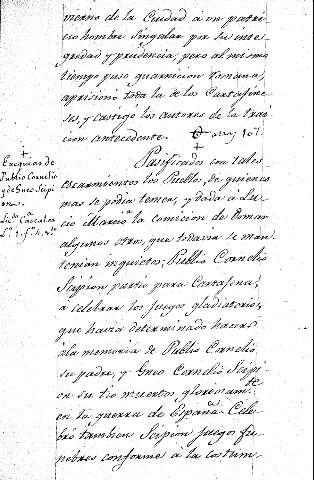 vierno de la Ciudad à un patri-
cio hombre singular por su inte-
gridad y prudencia; pero al mismo
tiempo puso guarnicion romana,
aprisionó toda la de los Cartagine-
ses, y castigó los autores de la trai-
cion antecedente.
+
Exequias de
Publio Cornelio
y de Gneo Scipi-
on.
Pasificados con tales
escarmientos los Pueblos, de quienes
mas se podia temer, y dada à Lu-
cio Marcio la comicion de domar
algunos otros, que todavia se man-
tenian inquietos; Publio Cornelio
Scipion partio para Cartagena,
à celebrar los juegos gladiatorios,
que havia determinado hacer
à la memoria de Publio Cornelio
su padre, y Gneo Cornelio Scipi-
on su tio muertos gloriosamte
en la guerra de España. Cele-
bró tambien Scipion juegos fu-
nebres conforme à la costum-